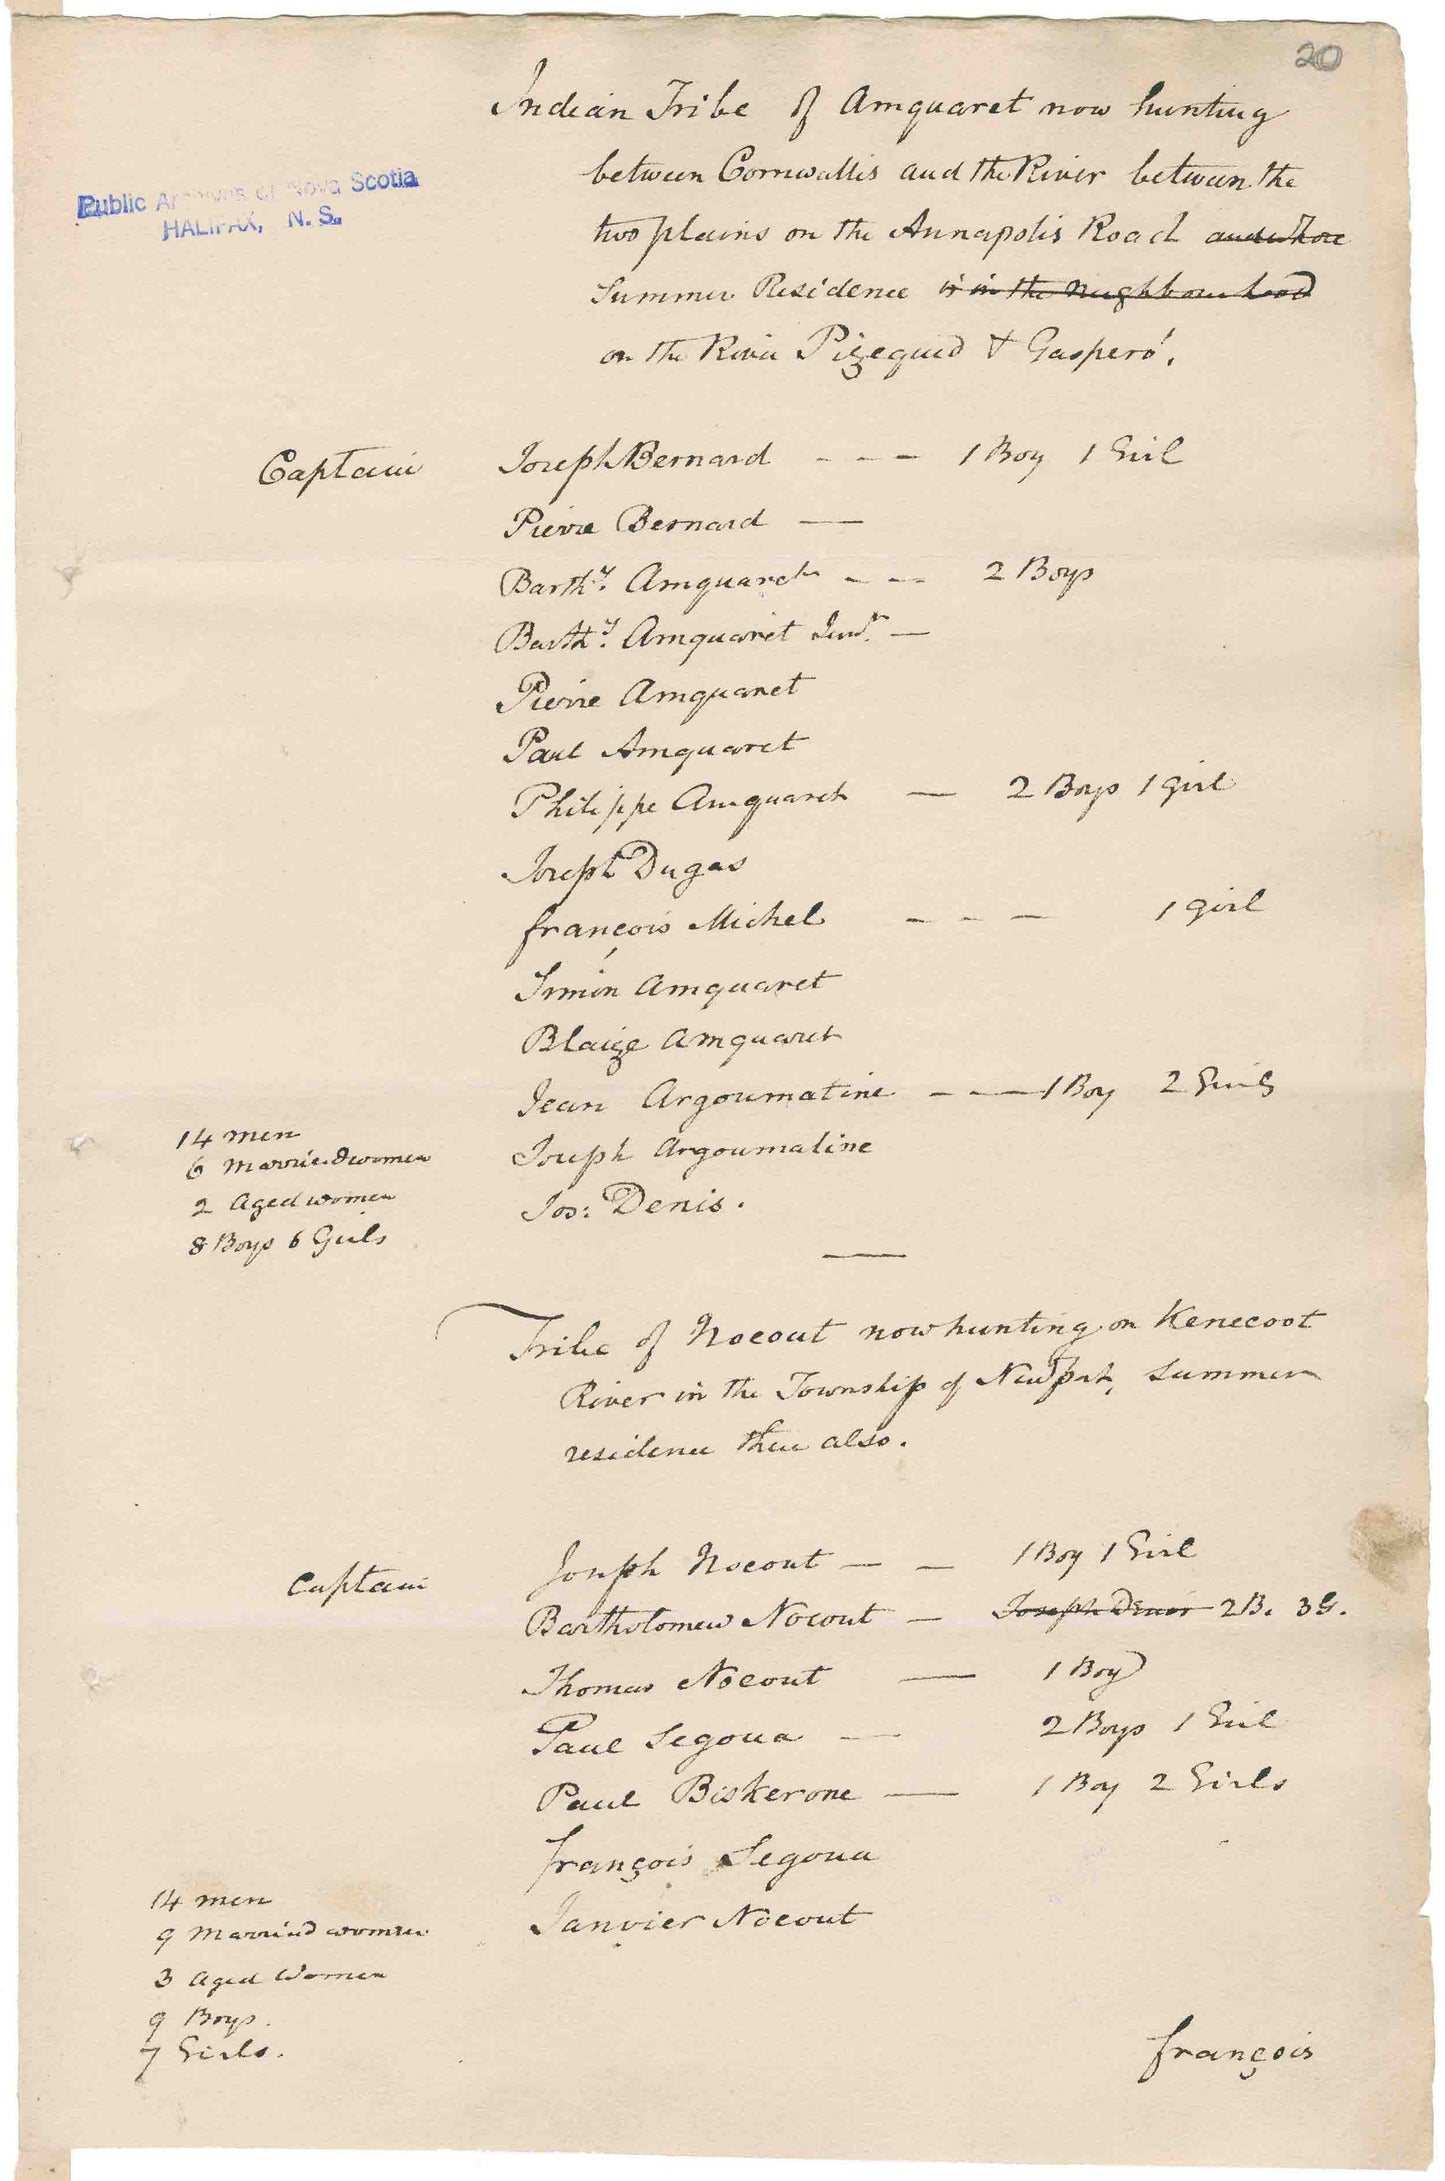 20
Indian Tribe of Amquaret now hunting
between Cornwallis and the River between the
two plains on the Annapolis Road and whose
Summer Residence is in the neighbourhood
on the River Pizequid & Gasperó.
Public Archives of Nova Scotia
HALIFAX, N. S.
Captain Joseph Bernard - - - 1 Boy 1 Girl
Pierre Bernard —
Barthy. Amquaret - - 2 Boys
Barthy. Amquaret Junr. —
Pierre Amquaret
Paul Amquaret
Philippe Amquaret — 2 Boys 1 girl
Joseph Dugas
françois Michel - - - 1 girl
Simón Amquaret
Blaize Amquaret
Jean Argoumatine - - — 1 Boy 2 Girls
Joseph Argoumatine
Jos: Denis.
14 men
6 Married women
2 Aged women
8 Boys 6 Girls
Tribe of Nocout now hunting on Kenecoot
River in the Township of Newport, summer
residence there also.
Captain Joseph Nocout — — 1 Boy 1 Girl
Bartholomew Nocout — Joseph Denis 2 B. 3 G.
Thomas Nocout — 1 Boy
Paul Segoua — 2 Boys 1 Girl
Paul Biskerone — 1 Boy 2 Girls
françois Segoua
Janvier Nocout
14 men
9 Married women
3 Aged Women
9 Boys.
7 Girls.
françois